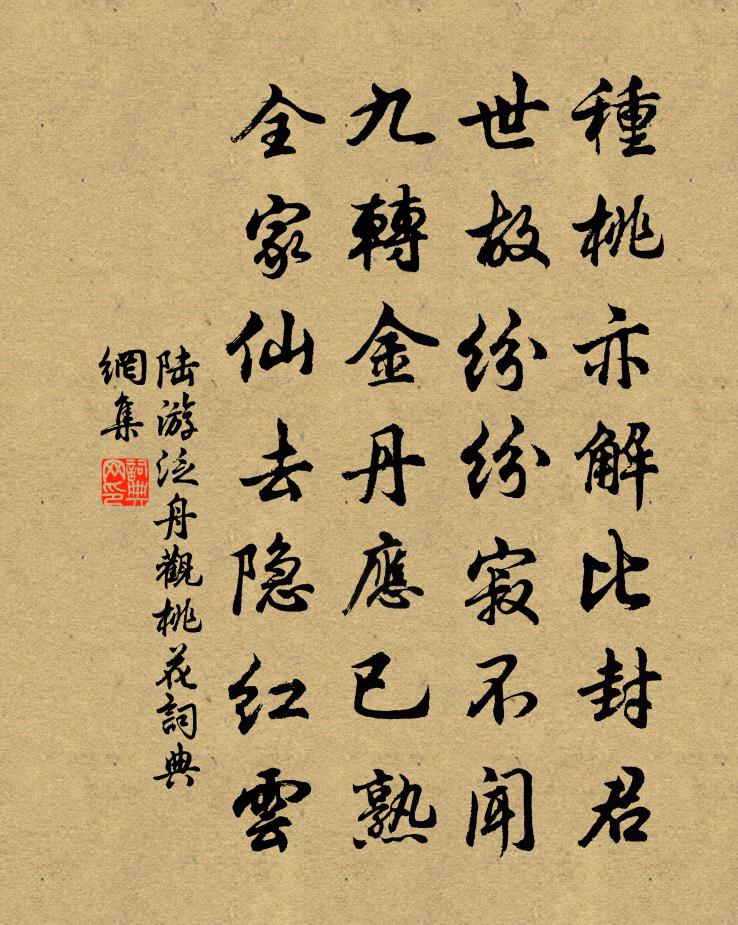 種桃亦解比封君
世故紛紛寂不闻
九轉金丹應已熟
全家仙去隐红雲
陆游泛舟觀桃花詞典
網集
詞典
网印